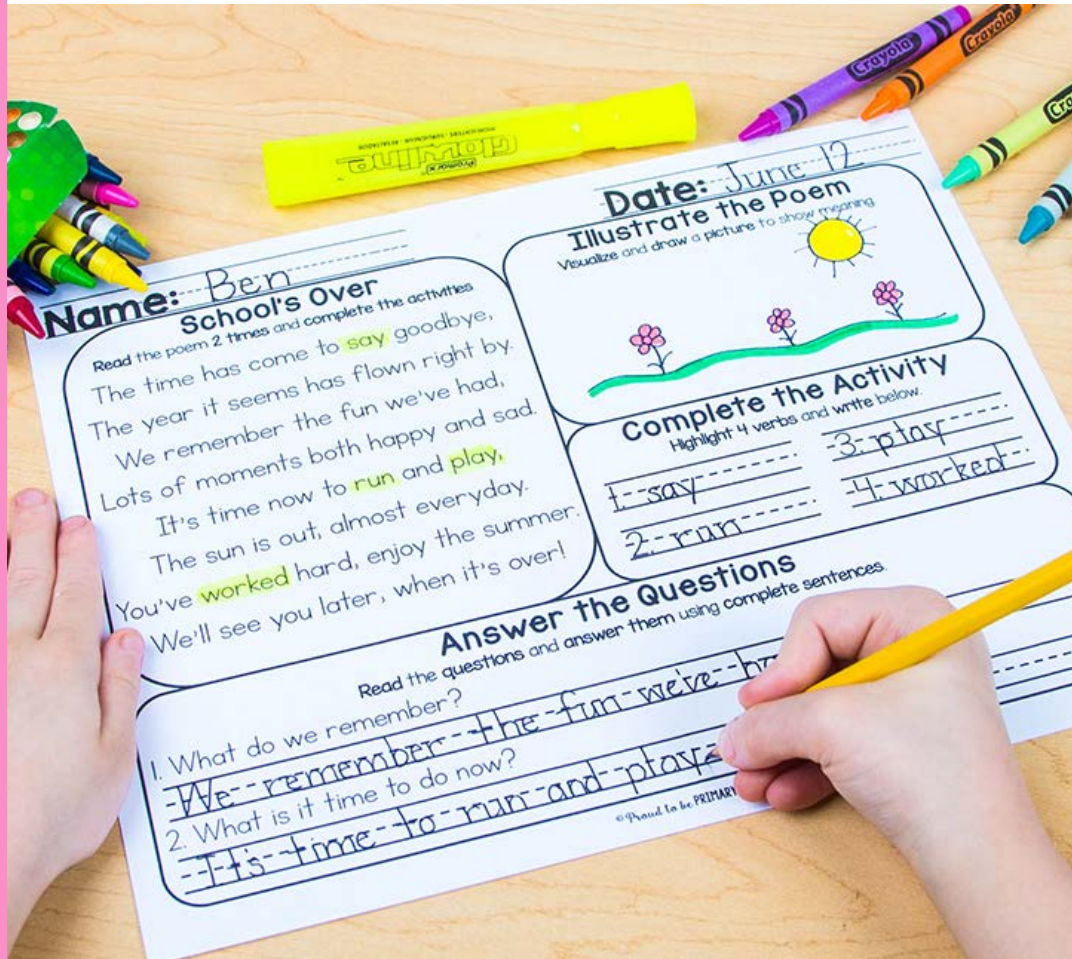 Crayola
Crayola
PROMARX
Glowline
HIGHLIGHTERS · SURLIGNEUR · RESALTADOR
Name: Ben
Date: June 12
School's Over
Read the poem 2 times and complete the activities
The time has come to say goodbye,
The year it seems has flown right by.
We remember the fun we've had,
Lots of moments both happy and sad.
It's time now to run and play,
The sun is out, almost everyday.
You've worked hard, enjoy the summer.
We'll see you later, when it's over!
Illustrate the Poem
Visualize and draw a picture to show meaning
Complete the Activity
Highlight 4 verbs and write below.
1. say
2. run
3. play
4. worked
Answer the Questions
Read the questions and answer them using complete sentences.
1. What do we remember?
We remember the fun we've
2. What is it time to do now?
It's time to run and play
©Proud to be PRIMARY